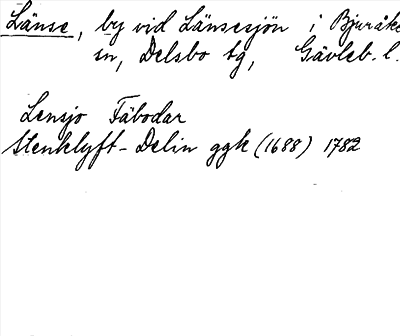 Länse, by vid Länsesjön i Bjuråke
sn, Delsbo tg, Gävleb. l.
Lensjo Fäbodar
Stenklyft-Delin ggk (1688) 1782